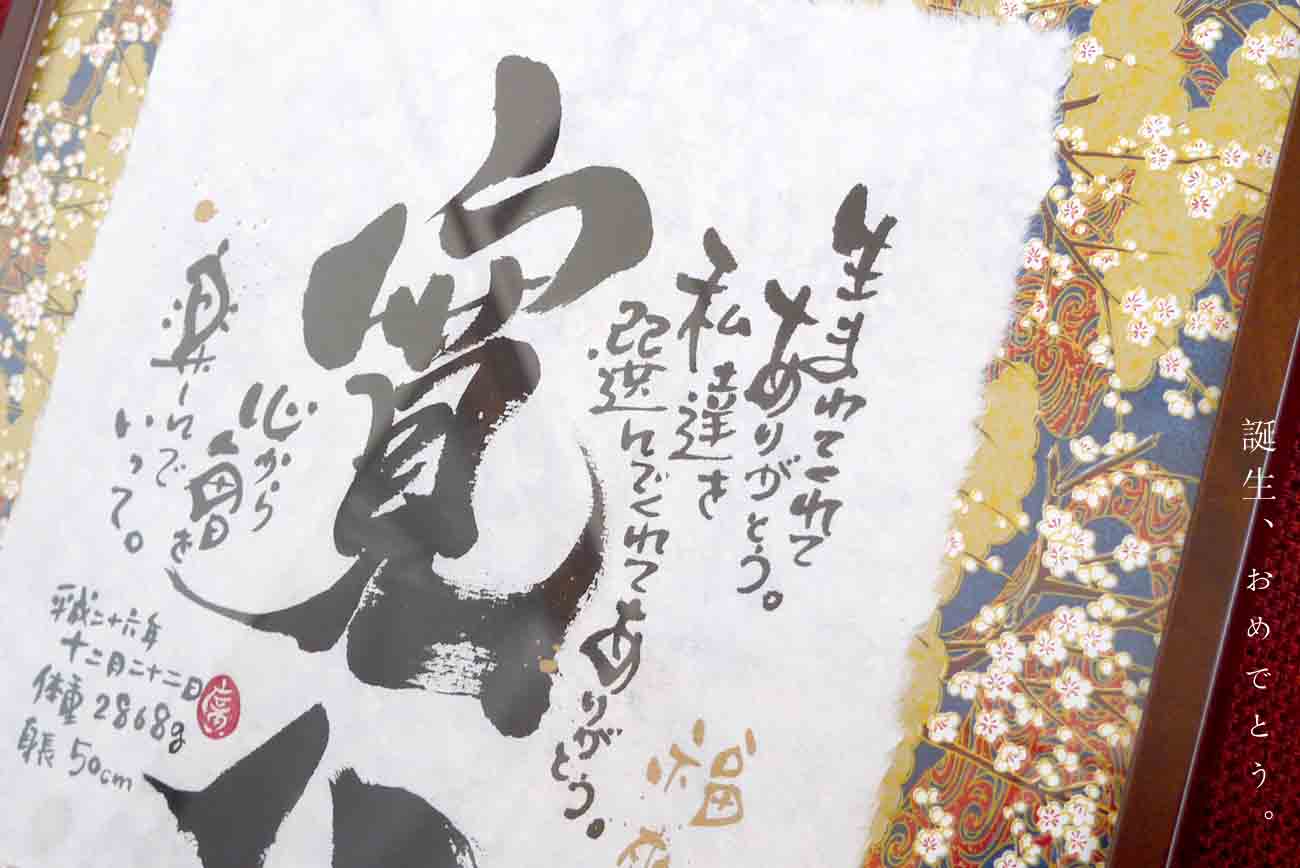 誕生、おめでとう。
生まれてくれて
ありがとう。
私達を
選んでくれて
ありがとう。
福
寛
心から
を
しんで
いって。
平成二十六年
十二月二十二日
体重 2868g
身長 50cm